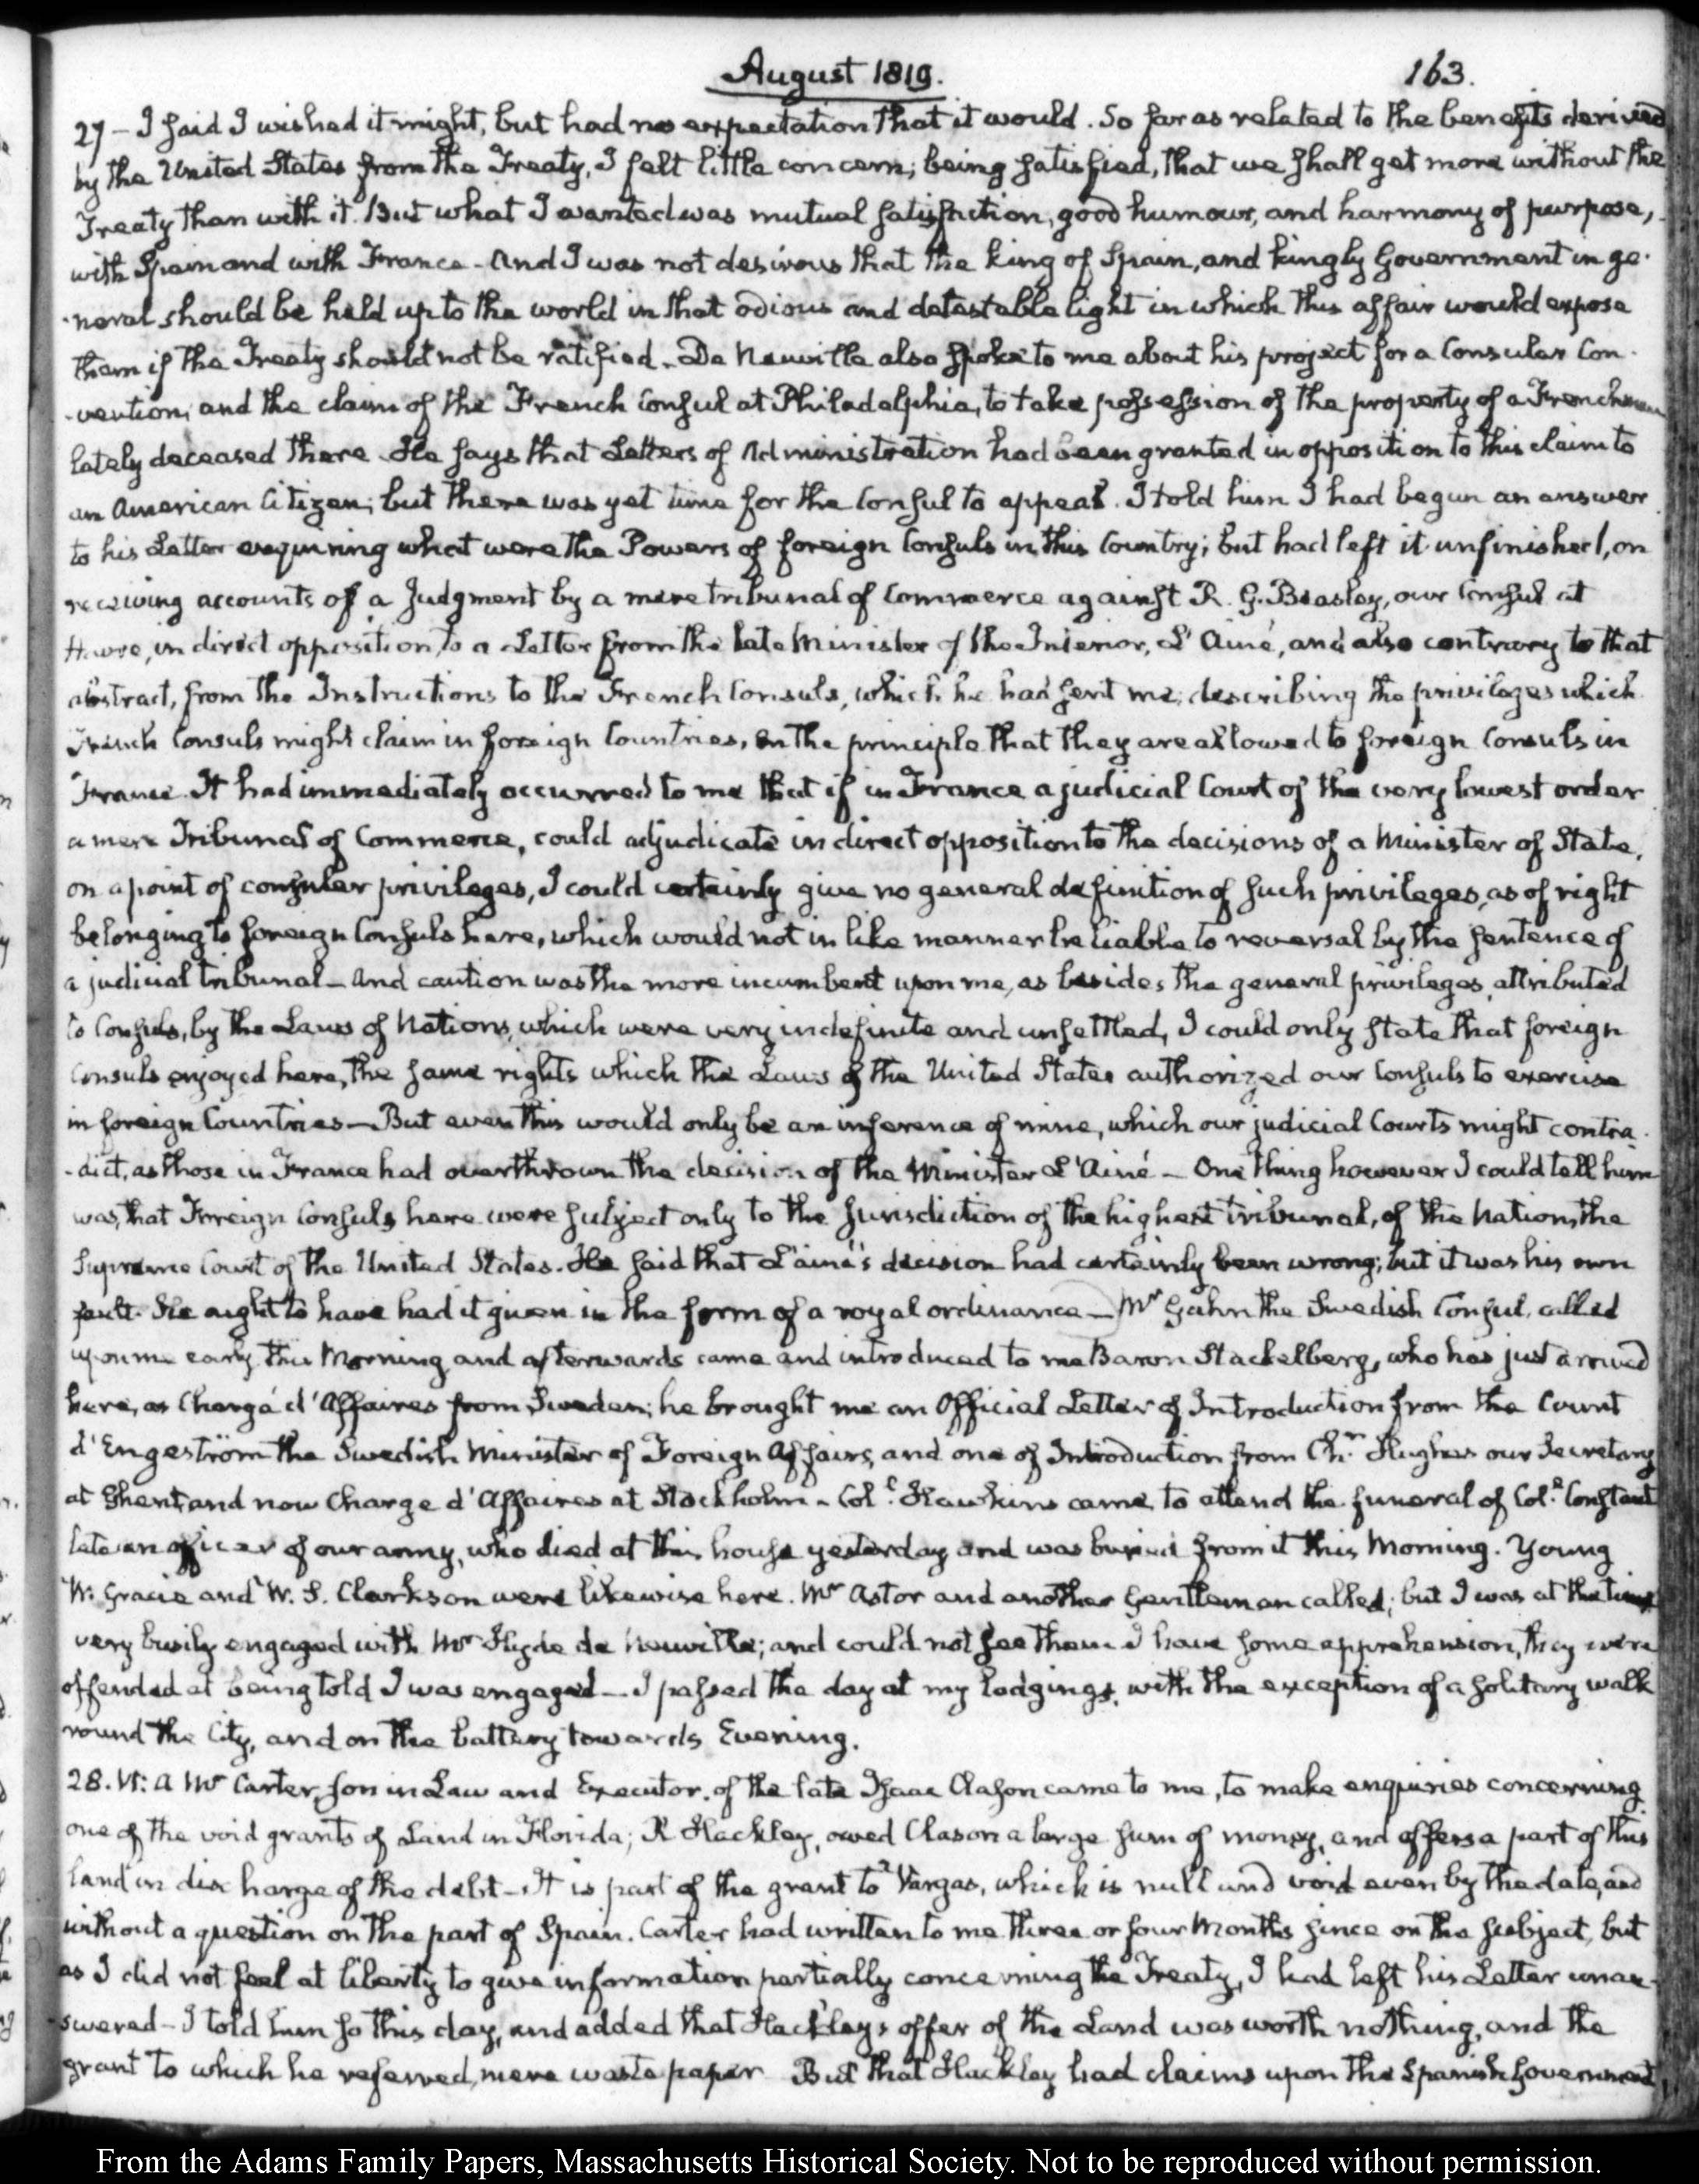 August 1819.
163.
27 – I said I wished it might, but had no expectation that it would. So far as related to the benefits derived
by the United States from the Treaty, I felt little concern; being satisfied, that we shall get more without the
Treaty than with it. But what I wanted was mutual satisfaction, good humour, and harmony of purpose,
with Spain and with France – And I was not desirous that the king of Spain, and kingly Government in ge-
-neral should be held up to the world in that odious and detestable light in which this affair would expose
them if the Treaty should not be ratified – De Neuville also spoke to me about his project for a Consular Con-
-vention, and the claim of the French Consul at Philadelphia, to take possession of the property of a Frenchman
lately deceased there. He says that Letters of Administration had been granted in opposition to this claim to
an American Citizen; but there was yet time for the Consul to appeal. I told him I had begun an answer
to his Letter enquiring what were the Powers of foreign Consuls in this Country; but had left it unfinished, on
receiving accounts of a Judgment by a mere tribunal of Commerce against R. G. Beasley, our Consul at
Havre, in direct opposition to a Letter from the late Minister of the Interior, L'Ainé, and also contrary to that
abstract, from the Instructions to the French Consuls, which he had sent me, describing the privileges which
French Consuls might claim in foreign Countries, on the principle that they are allowed to foreign Consuls in
France. It had immediately occurred to me that if in France a judicial Court of the very lowest order
a mere Tribunal of Commerce, could adjudicate in direct opposition to the decisions of a Minister of State,
on a point of consular privileges, I could certainly give no general definition of such privileges, as of right
belonging to foreign Consuls here, which would not in like manner be liable to reversal by the sentence of
a judicial tribunal – and caution was the more incumbent upon me, as besides the general privileges, attributed
to Consuls, by the Laws of Nations, which were very indefinite and unsettled, I could only state that foreign
Consuls enjoyed here, the same rights which the Laws of the United States authorized our Consuls to exercise
in foreign Countries – But even this would only be an inference of mine, which our judicial Courts might contra-
-dict, as those in France had overthrown the decision of the Minister L'Ainé – One thing however I could tell him
was, that Foreign Consuls here were subject only to the Jurisdiction of the highest tribunal, of the Nation, the
Supreme Court of the United States. He said that L'ainé's decision had certainly been wrong; but it was his own
fault. He ought to have had it given in the form of a royal ordinance – Mr Gahn the Swedish Consul, called
upon me early this Morning, and afterwards came and introduced to me Baron Stackelberg, who has just arrived
here, as Chargé d'Affaires from Sweden; he brought me an Official Letter of Introduction from the Count
d'Engeström the Swedish Minister of Foreign Affairs, and one of Introduction from Chr. Hughes our Secretary
at Ghent, and now Charge d'Affaires at Stockholm – Col.l Hawkins came to attend the funeral of Col.l Constant
late an officer of our army, who died at this house yesterday and was buried from it this Morning. Young
W. Gracie and W. S. Clarkson were likewise here. Mr Astor and another Gentleman called; but I was at the time
very busily engaged with Mr Hyde de Neuville; and could not see them. I have some apprehension, they were
offended at being told I was engaged – I passed the day at my lodgings, with the exception of a solitary walk
round the City, and on the battery towards Evening.
28. VI: A Mr Carter, son in Law and Executor, of the late Isaac Clason came to me, to make enquiries concerning
one of the void grants of Land in Florida; R Hackley, owed Clason a large sum of money, and offers a part of this
land in discharge of the debt – It is part of the grant to Vargas, which is null and void even by the date, and
without a question on the part of Spain. Carter had written to me three or four Months since on the subject, but
as I did not feel at liberty to give information partially concerning the Treaty, I had left his Letter unan-
-swered – I told him so this day, and added that Hackley's offer of the Land was worth nothing, and the
grant to which he referred, mere waste paper But that Hackley had claims upon the Spanish Government
From the Adams Family Papers, Massachusetts Historical Society. Not to be reproduced without permission.